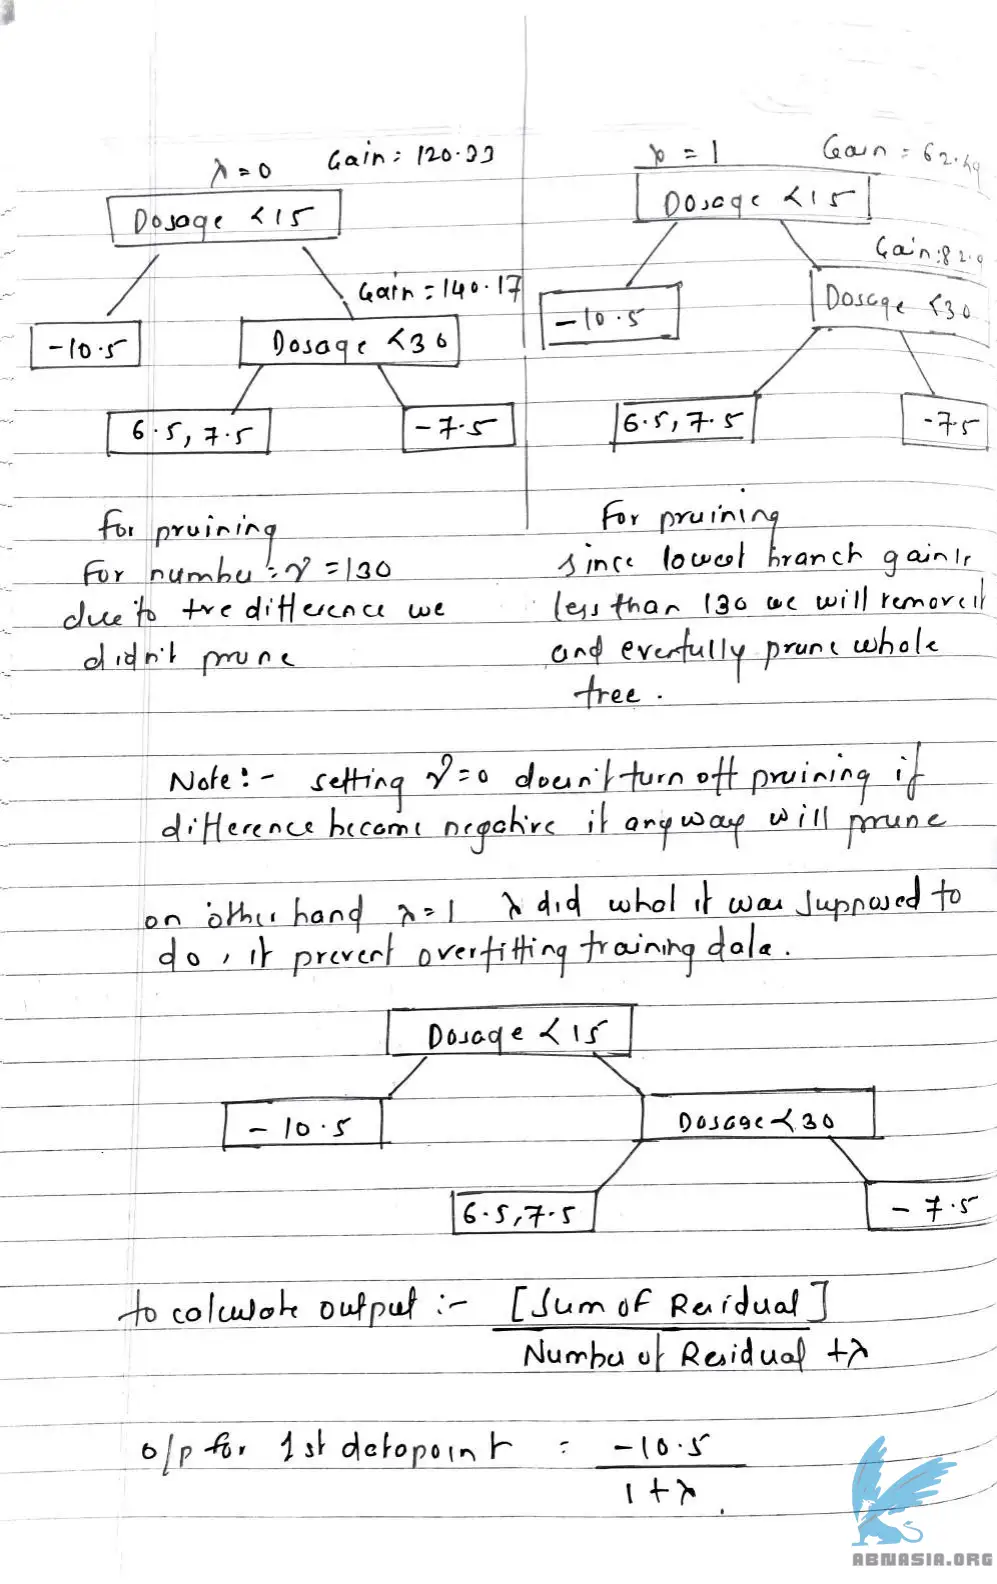 λ = 0 Gain : 120.33
Dosage < 15
Gain = 140.17
-10.5
Dosage < 30
6.5, 7.5
-7.5
for pruining
For number : γ = 130
due to tve difference we
didn't prune
= 1 Gain = 62.
Dosage < 15
Gain : 82.9
-10.5
Dosage < 30
6.5, 7.5
-7.5
For pruining
since lowest branch gain is
less than 130 we will remove it
and evenfully prune whole
tree .
Note :- setting γ = 0 doesn't turn off pruining if
difference become negative it anyway will prune
on other hand λ = 1 λ did what it was supposed to
do, it prevent overfitting training data .
Dosage < 15
-10.5
Dosage < 30
6.5, 7.5
-7.5
to calculate output :- [Sum of Residual]
Number of Residual + λ
o/p for 1st datapoint = -10.5
1 + λ .
ABNASIA.ORG